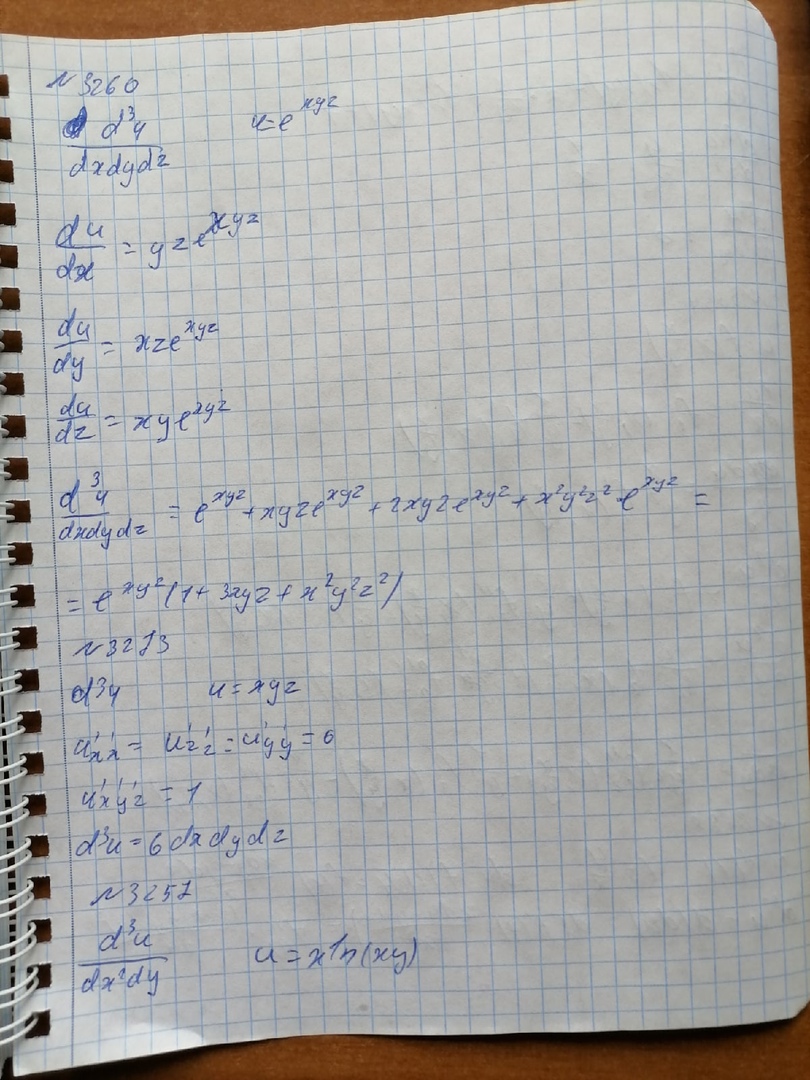 N 3260
d³u u=e^xyz
dxdydz
du/dx = yze^xyz
du/dy = xze^xyz
du/dz = xye^xyz
d³u/dxdydz = e^xyz + xyze^xyz + 2xyze^xyz + x²y²z² e^xyz =
= e^xyz (1 + 3xyz + x²y²z²)
N 3273
d³u u = xyz
u'x'x = u'z'z = u'y'y = 0
u'x'y'z = 1
d³u = 6 dxdydz
N 3257
d³u/dx²dy u = x ln(xy)